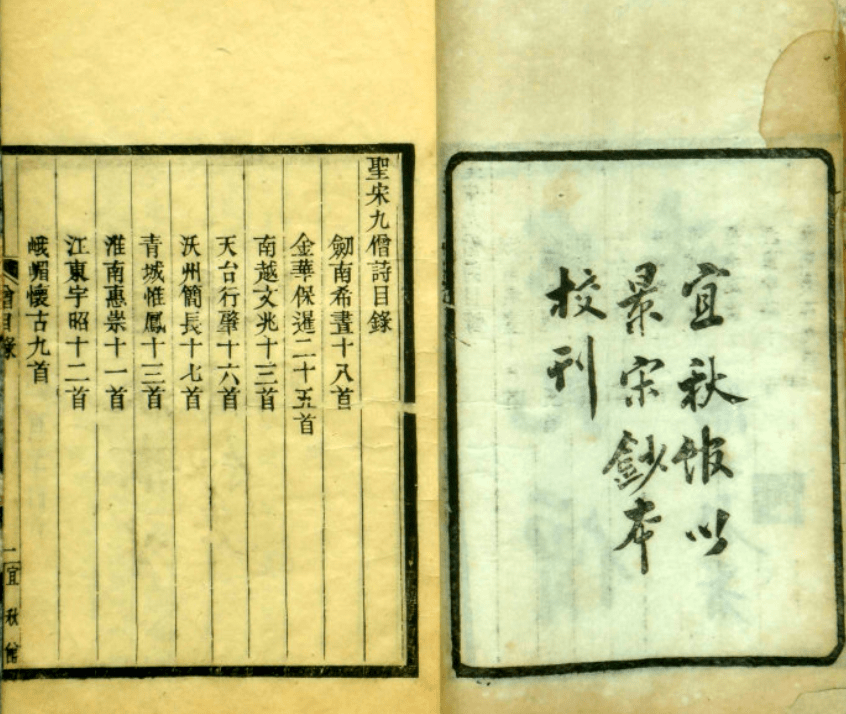 宜秋館以
景宋鈔本
校刊
聖宋九僧詩目錄
劒南希晝十八首
金華保暹二十五首
南越文兆十三首
天台行肇十六首
沃州簡長十七首
青城惟鳳十三首
淮南惠崇十一首
江東宇昭十二首
峨嵋懷古九首
目錄
一
宜秋館